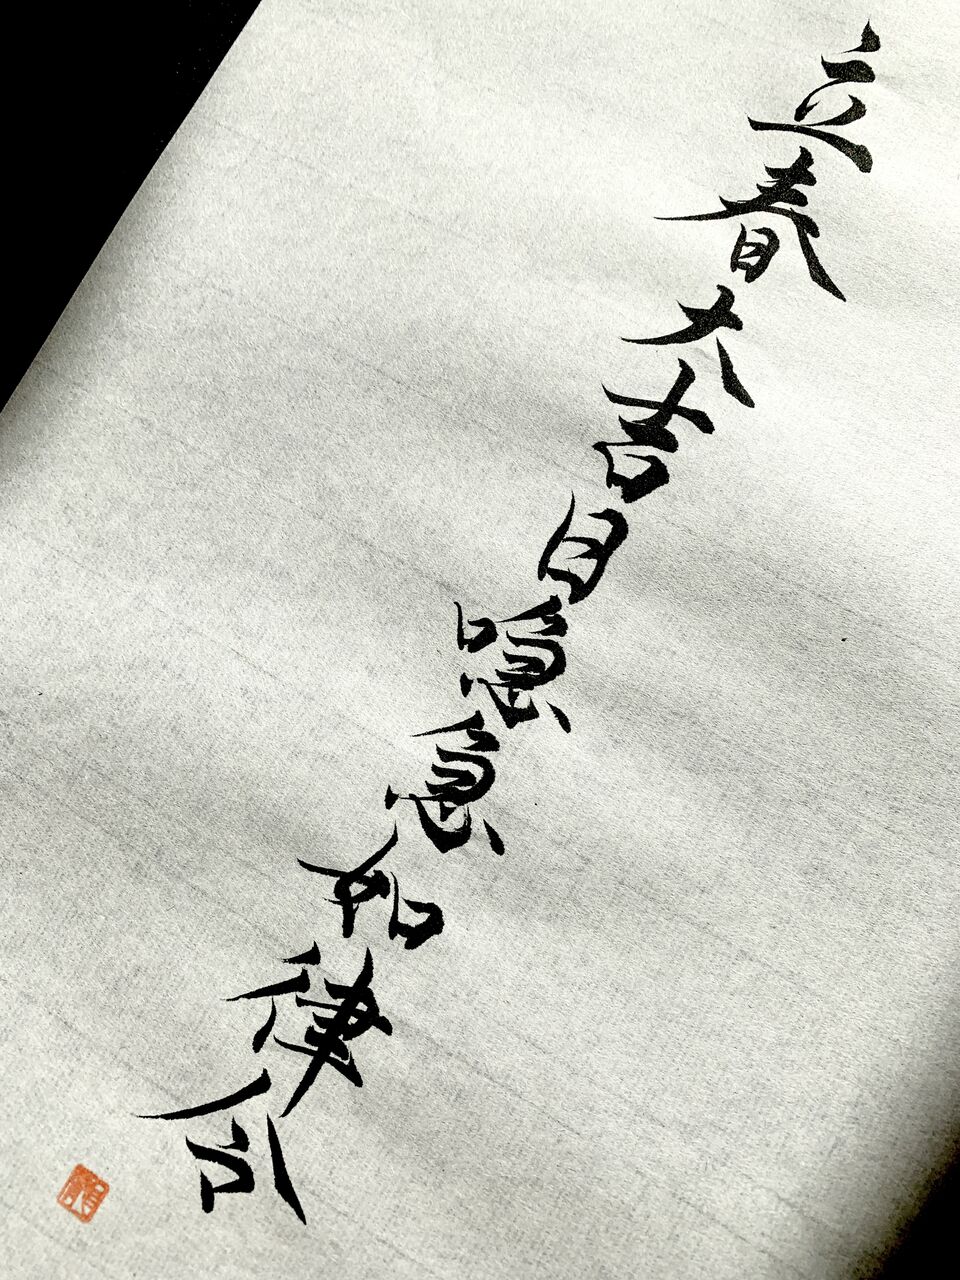 立春大吉日噫急如律令